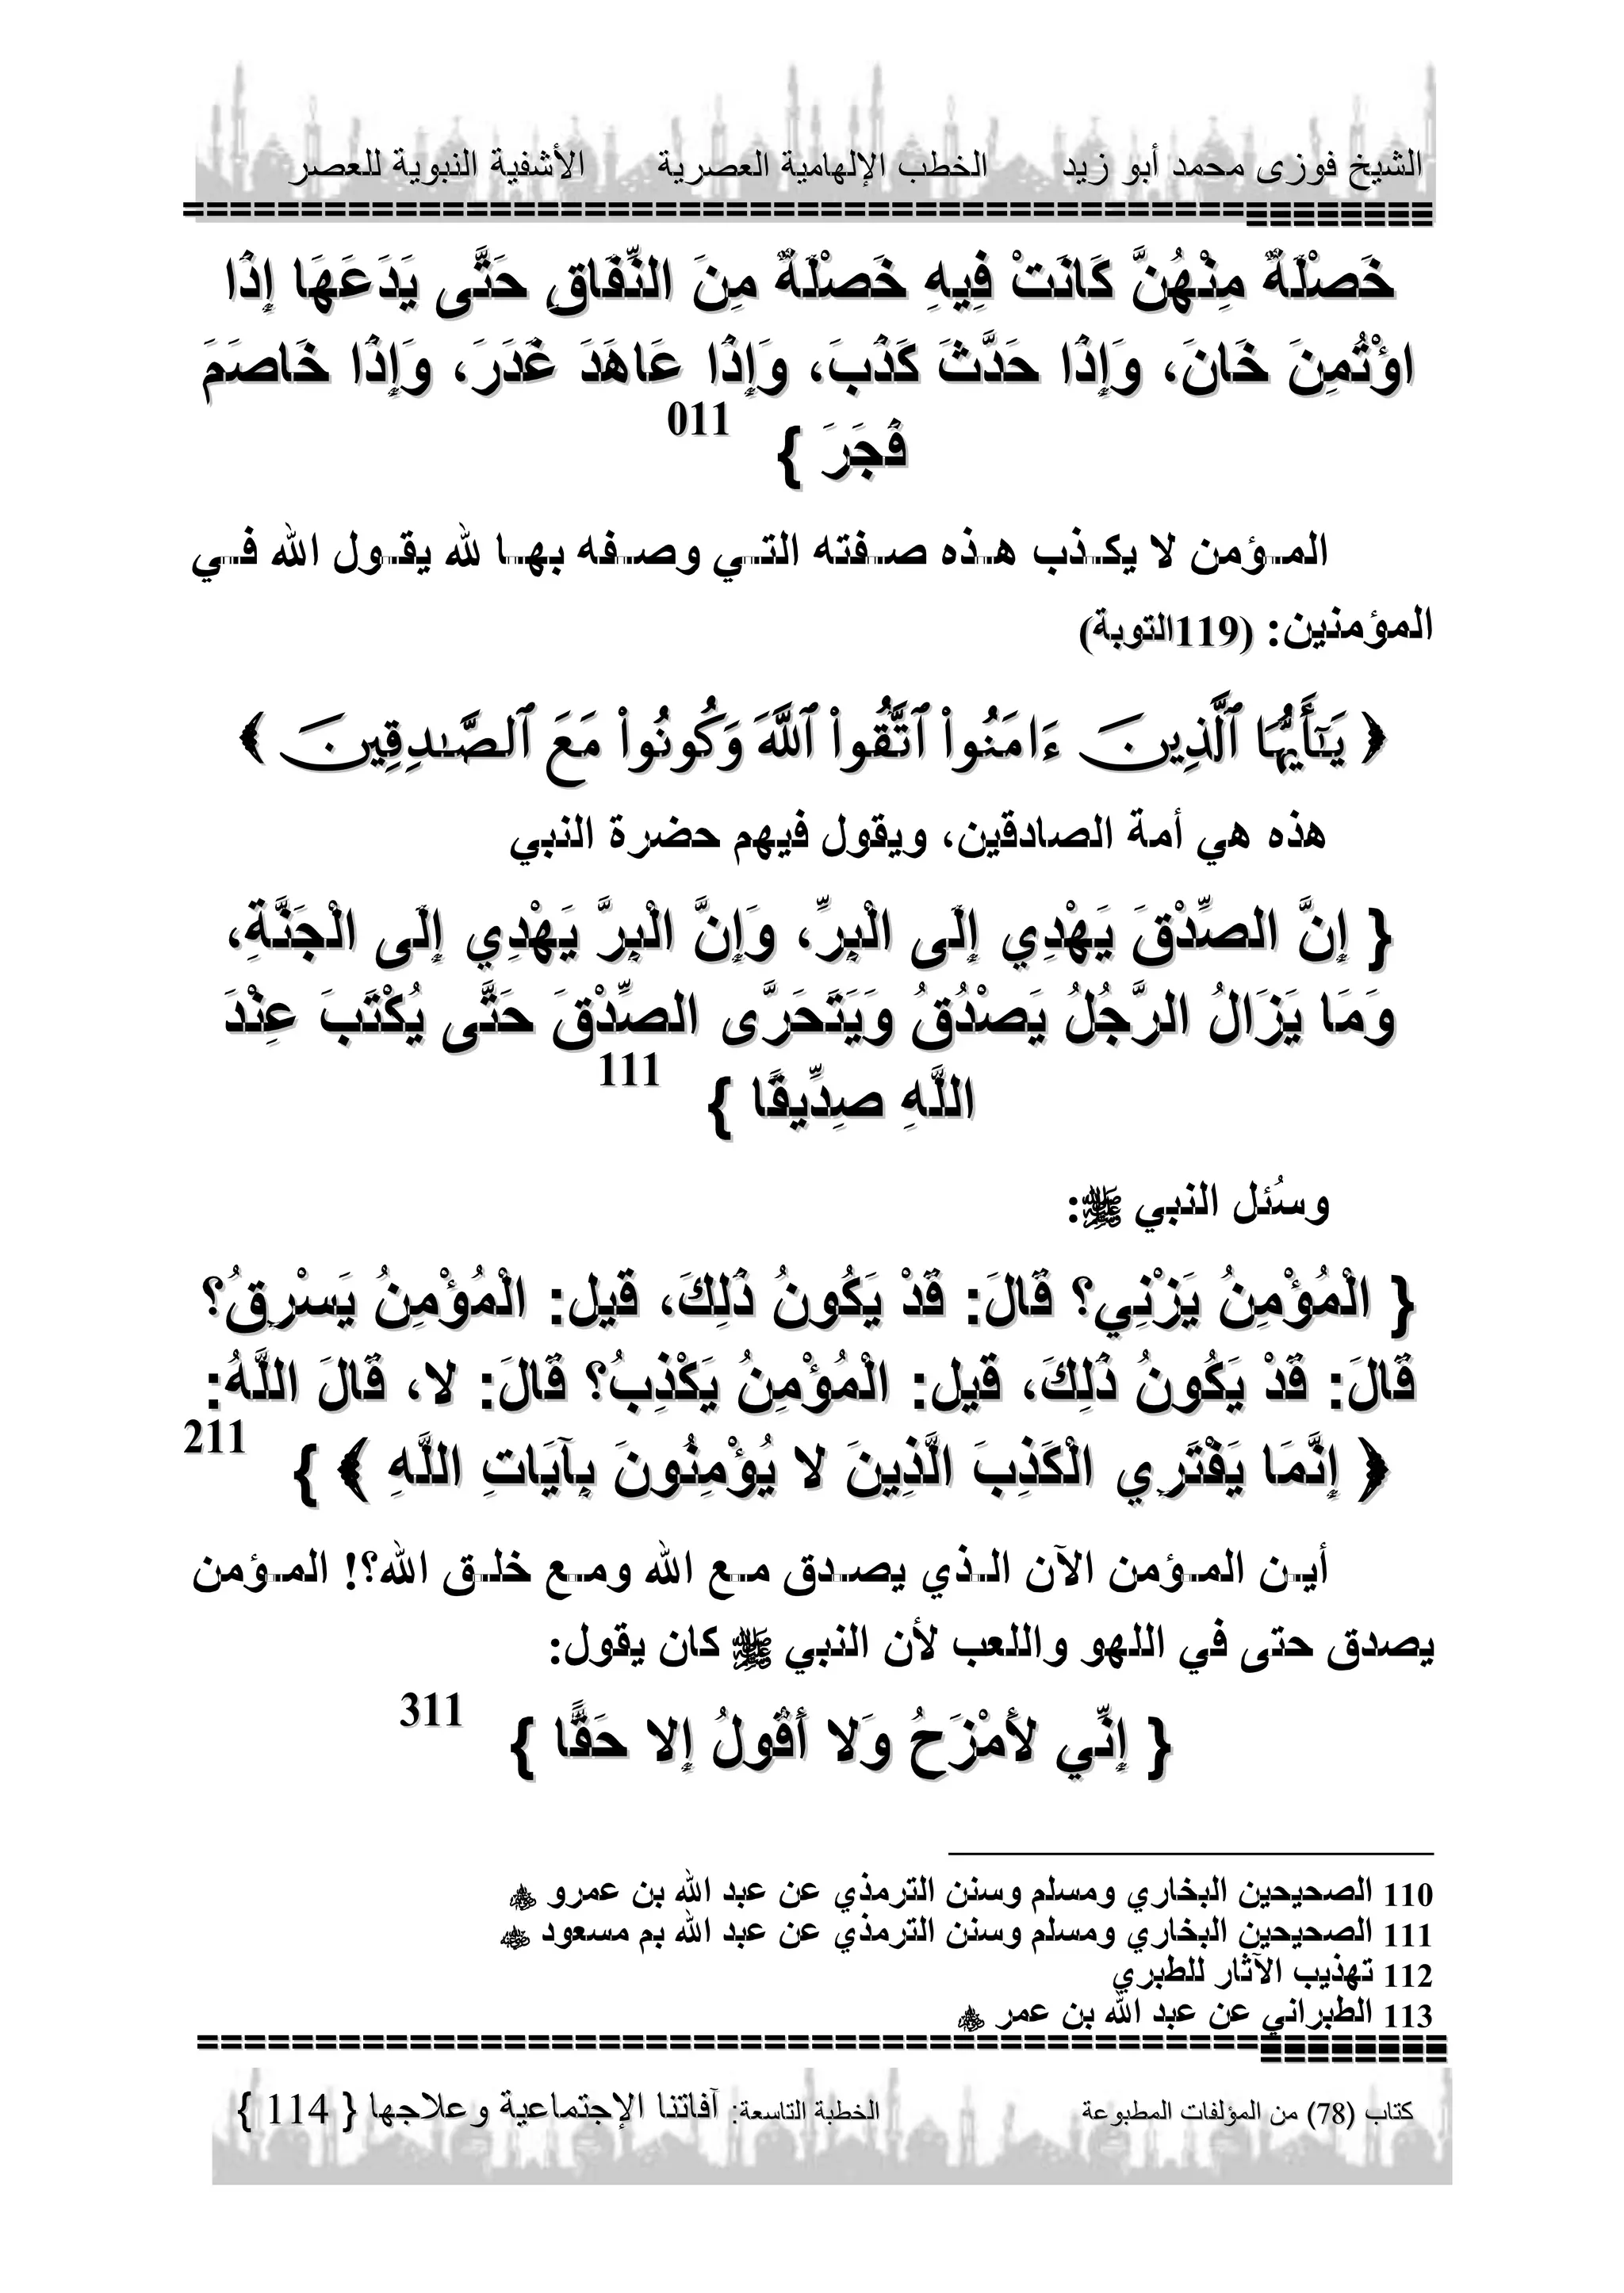 الشيخ فوزى محمد أبو زيد الخطب الإلهامية العصرية الأشفية النبوية للعصر
خَصْلَةٌ مِنْهُنَّ كَانَتْ فِيهِ خَصْلَةٌ مِنَ النِّفَاقِ حَتَّى يَدَعَهَا إِذَا
اؤْتُمِنَ خَانَ، وَإِذَا حَدَّثَ كَذَبَ، وَإِذَا عَاهَدَ غَدَرَ، وَإِذَا خَاصَمَ
فَجَرَ } 011
المؤمن لا يكذب هذه صفته التي وصفه بها لله يقول الله في
المؤمنين: (119التوبة)
﴿ يَـٰٓأَيُّهَا ٱلَّذِينَ ءَامَنُوا۟ ٱتَّقُوا۟ ٱللَّهَ وَكُونُوا۟ مَعَ ٱلصَّـٰدِقِينَ ﴾
هذه هي أمة الصادقين، ويقول فيهم حضرة النبي
{ إِنَّ الصِّدْقَ يَهْدِي إِلَى الْبِرِّ، وَإِنَّ الْبِرَّ يَهْدِي إِلَى الْجَنَّةِ،
وَمَا يَزَالُ الرَّجُلُ يَصْدُقُ وَيَتَحَرَّى الصِّدْقَ حَتَّى يُكْتَبَ عِنْدَ
اللَّهِ صِدِّيقًا } 111
وسُئل النبي ﷺ:
{ الْمُؤْمِنُ يَزْنِي؟ قَالَ: قَدْ يَكُونُ ذَلِكَ، قيل: الْمُؤْمِنُ يَسْرِقُ؟
قَالَ: قَدْ يَكُونُ ذَلِكَ، قيل: الْمُؤْمِنُ يَكْذِبُ؟ قَالَ: لا، قَالَ اللَّهُ:
﴿ إِنَّمَا يَفْتَرِي الْكَذِبَ الَّذِينَ لا يُؤْمِنُونَ بِآيَاتِ اللَّهِ ﴾ } 211
أين المؤمن الآن الذي يصدق مع الله ومع خلق الله؟! المؤمن
يصدق حتى في اللهو واللعب لأن النبي ﷺ كان يقول:
{ إِنِّي لأَمْزَحُ وَلا أَقُولُ إِلا حَقًّا } 311
110 الصحيحين البخاري ومسلم وسنن الترمذي عن عبد الله بن عمرو
111 الصحيحين البخاري ومسلم وسنن الترمذي عن عبد الله بم مسعود
112 تهذيب الآثار للطبري
113 الطبراني عن عبد الله بن عمر
كتاب (78) من المؤلفات المطبوعة الخطبة التاسعة: آفاتنا الإجتماعية وعلاجها { 114 }